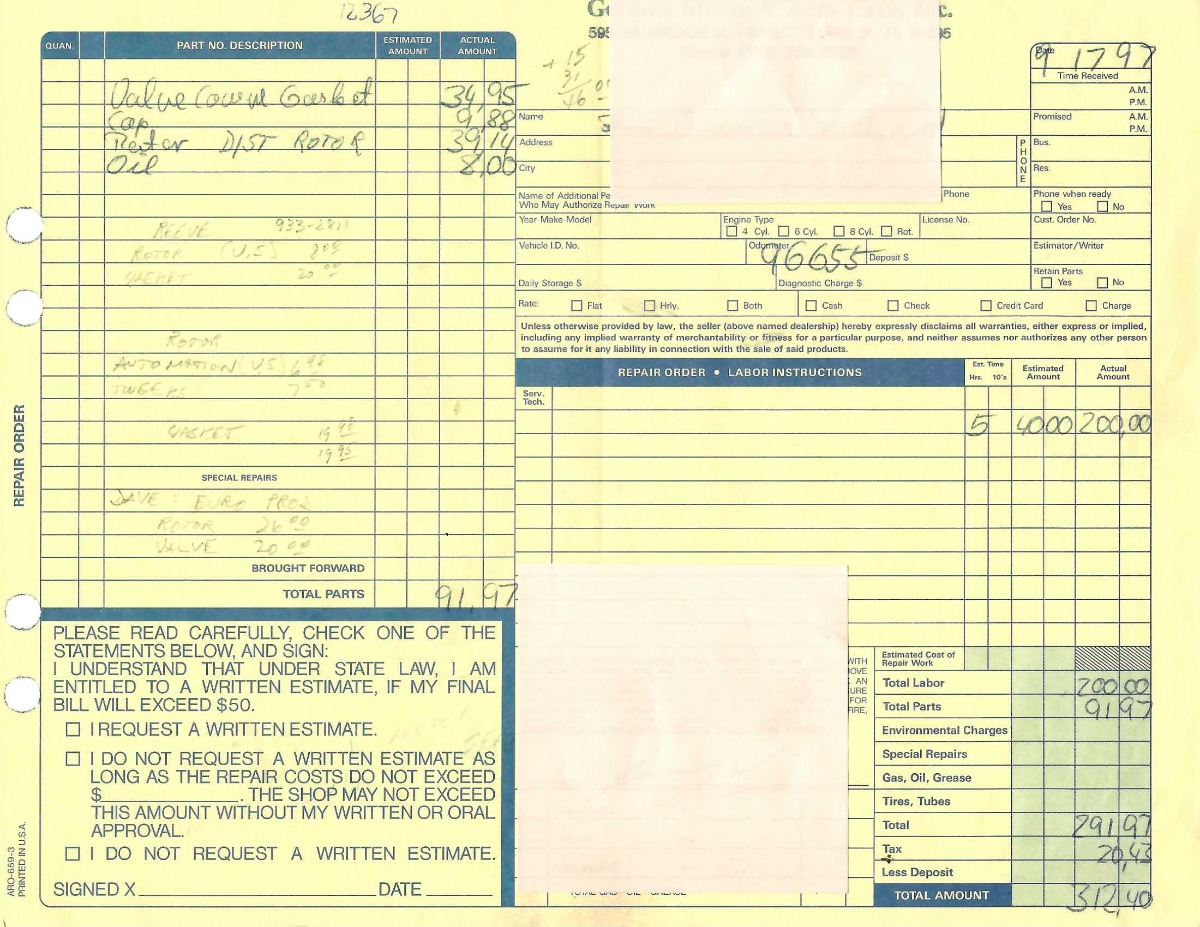 12367
QUAN. PART NO. DESCRIPTION ESTIMATED AMOUNT ACTUAL AMOUNT
Gasket 34,95
Cap 9,88
DIST ROTOR 39,14
Oil 8,00
REEVE 933-2811
ROTOR (U.S) 8 00
GASKET 20 00
ROTOR
AUTOMOTION (US) 6 98
TWEEKS 7 00
GASKET 19 98
19 95
SPECIAL REPAIRS
DAVE: EURO PROD
ROTOR 26 00
VALVE 20 00
BROUGHT FORWARD
TOTAL PARTS 91,97
REPAIR ORDER
PLEASE READ CAREFULLY, CHECK ONE OF THE
STATEMENTS BELOW, AND SIGN:
I UNDERSTAND THAT UNDER STATE LAW, I AM
ENTITLED TO A WRITTEN ESTIMATE, IF MY FINAL
BILL WILL EXCEED $50.
I REQUEST A WRITTEN ESTIMATE.
I DO NOT REQUEST A WRITTEN ESTIMATE AS
LONG AS THE REPAIR COSTS DO NOT EXCEED
$ . THE SHOP MAY NOT EXCEED
THIS AMOUNT WITHOUT MY WRITTEN OR ORAL
APPROVAL.
I DO NOT REQUEST A WRITTEN ESTIMATE.
SIGNED X DATE
ARO-659-3
PRINTED IN U.S.A.
595
+ 15
31
46 00
Date 9 17 97
Time Received
A.M.
P.M.
Name Promised A.M.
P.M.
Address PHONE Bus.
City Res.
Name of Additional
Who May Authorize Repair Work
Phone Phone when ready
Yes No
Year-Make-Model Engine Type License No. Cust. Order No.
4 Cyl. 6 Cyl. 8 Cyl. Rot.
Vehicle I.D. No. Odometer 96655 Deposit $ Estimator/Writer
Daily Storage $ Diagnostic Charge $ Retain Parts
Yes No
Rate: Flat Hrly. Both Cash Check Credit Card Charge
Unless otherwise provided by law, the seller (above named dealership) hereby expressly disclaims all warranties, either express or implied,
including any implied warranty of merchantability or fitness for a particular purpose, and neither assumes nor authorizes any other person
to assume for it any liability in connection with the sale of said products.
REPAIR ORDER • LABOR INSTRUCTIONS Est. Time Hrs. 10's Estimated Amount Actual Amount
Serv.
Tech.
5 4000 200,00
WITH
AN
FOR
Estimated Cost of
Repair Work
Total Labor 200 00
Total Parts 91 97
Environmental Charges
Special Repairs
Gas, Oil, Grease
Tires, Tubes
Total 291,97
Tax 20,43
Less Deposit
TOTAL AMOUNT 312,40